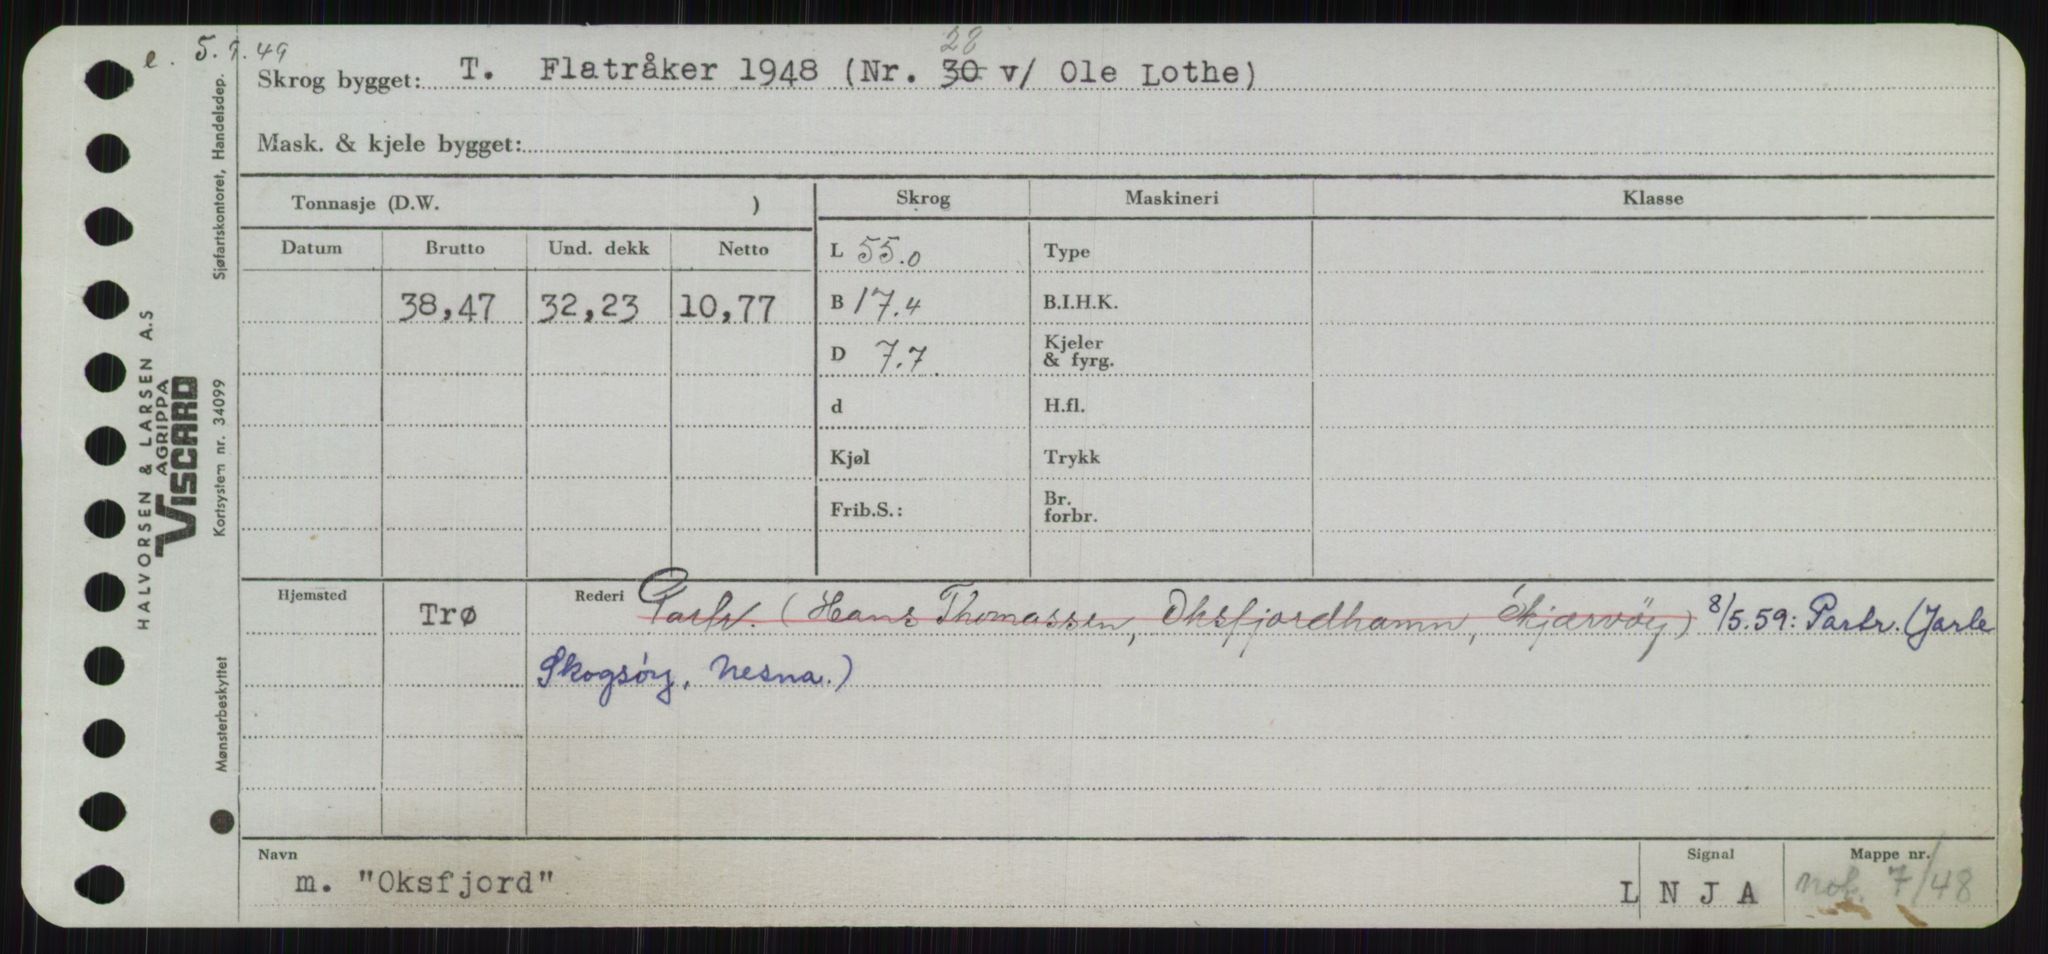 e. 5.9.49
28
Skrog bygget: T. Flatråker 1948 (Nr. 30 v/ Ole Lothe)
Mask. & kjele bygget:
Tonnasje (D.W. ) Skrog Maskineri Klasse
Datum Brutto Und. dekk Netto
L 55.0 Type
38,47 32,23 10,77 B 17.4 B.I.H.K.
D 7.7 Kjeler & fyrg.
d H.fl.
Kjøl Trykk
Frib.S.: Br. forbr.
Hjemsted Trø Rederi Partr. (Hans Thomassen, Oksfjordhamn, Skjærvöy) 8/5.59: Partr. (Jarle
Skogsöy, Nesna.)
Navn Signal Mappe nr.
m. "Oksfjord" L N J A nok. 7/48
HALVORSEN & LARSEN A.S
AGRIPPA
VISCARD
Sjøfartskontoret, Handelsdep.
Kortsystem nr. 34099
Mønsterbeskyttet